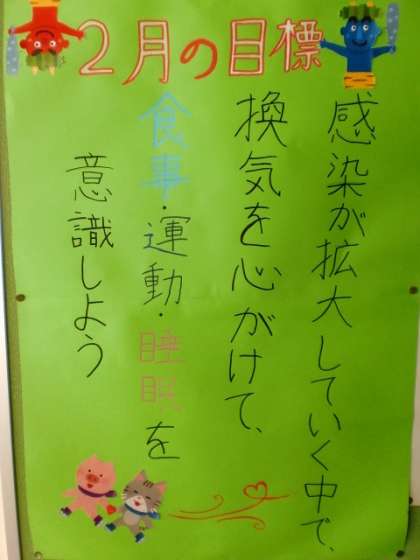 2月の目標
感染が拡大していく中で、
換気を心がけて、
食事・運動・睡眠を
意識しよう